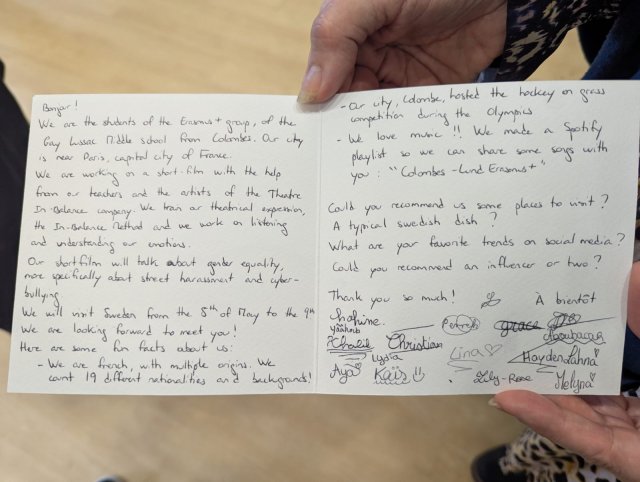 Bonjour!
We are the students of the Erasmus+ group, of the
Gay Lussac Middle school from Colombes. Our city
is near Paris, capital city of France.
We are working on a short-film with the help
from our teachers and the artists of the Theatre
In-Balance company. We train our theatrical expression,
the In-Balance Method and we work on listening
and understanding our emotions.
Our shortfilm will talk about gender equality,
more specifically about street harassment and cyber-
bullying
We will visit Sweden from the 5th of May to the 9th
We are looking forward to meet you!
Here are some fun facts about us:
- We are french, with multiple origins. We
count 19 different nationalities and backgrounds!
- Our city, Colombe, hosted the hockey on grass
competition during the Olympics
- We love music !! We made a Spotify
playlist so we can share some songs with
you : "Colombes-Lund Erasmus+"
Could you recommend us some places to visit?
A typical swedish dish ?
What are your favorite trends on social media?
Could you recommend an influencer or two?
Thank you so much!
À bientôt
grace
Aboubacar
Christian
Lydia
Lina
Hayden
Aya
Kaïs
Lily-Rose
Melyna